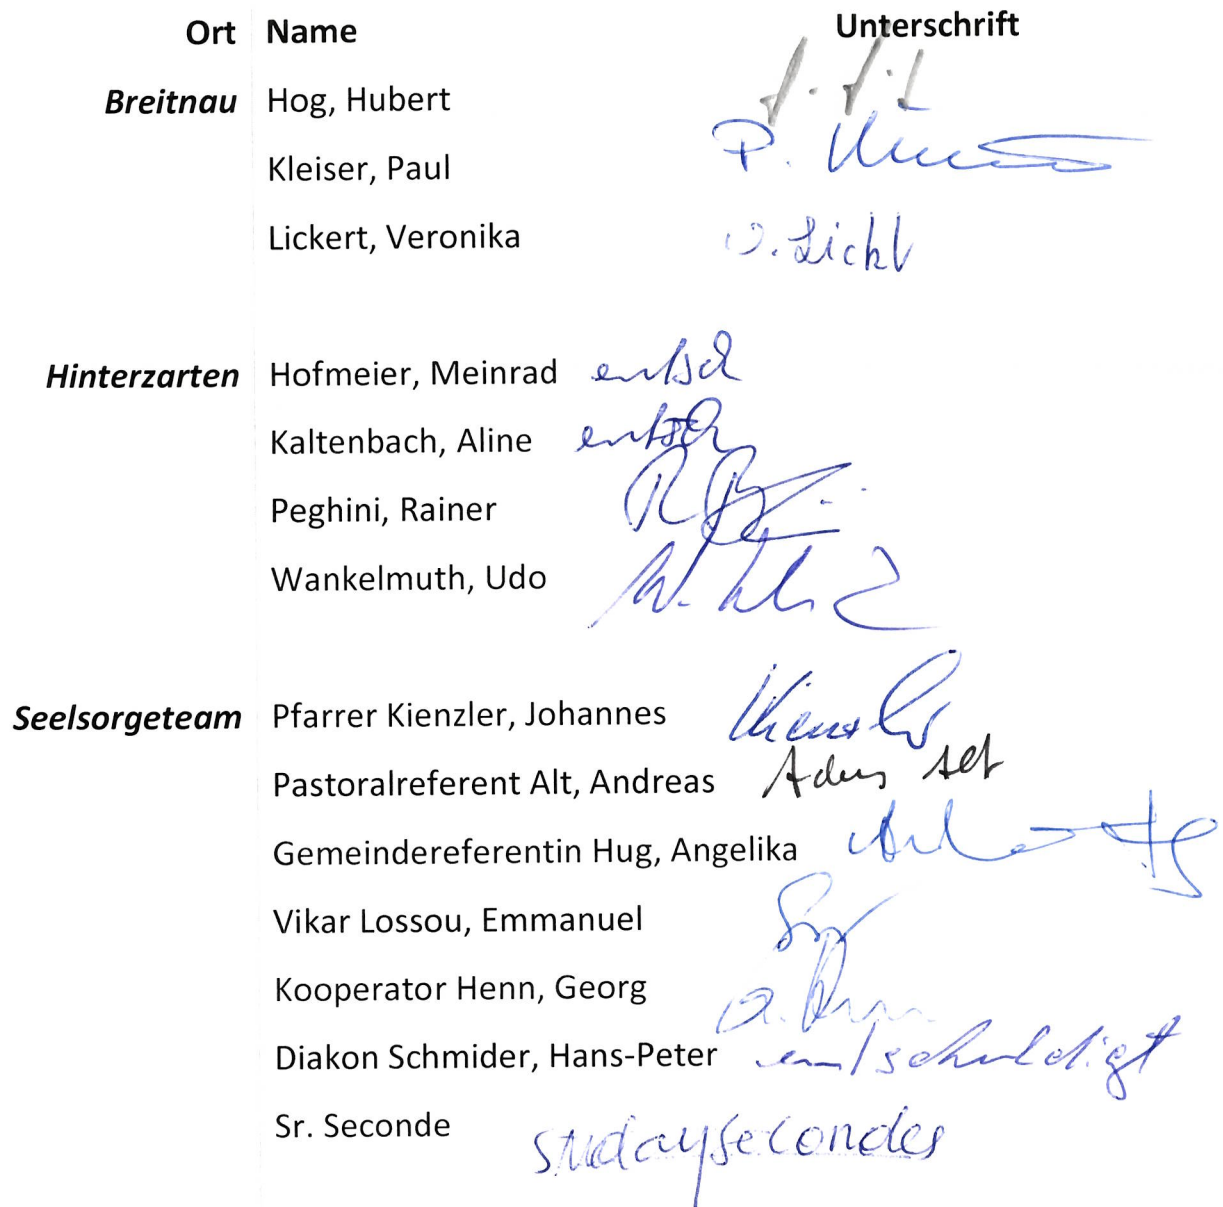 Ort Name Unterschrift
Breitnau Hog, Hubert
Kleiser, Paul P.
Lickert, Veronika V. Lickt
Hinterzarten Hofmeier, Meinrad entsch
Kaltenbach, Aline entsch
Peghini, Rainer R
Wankelmuth, Udo W.
Seelsorgeteam Pfarrer Kienzler, Johannes Kienzler
Pastoralreferent Alt, Andreas Alt
Gemeindereferentin Hug, Angelika
Vikar Lossou, Emmanuel
Kooperator Henn, Georg
Diakon Schmider, Hans-Peter entschuldigt
Sr. Seconde